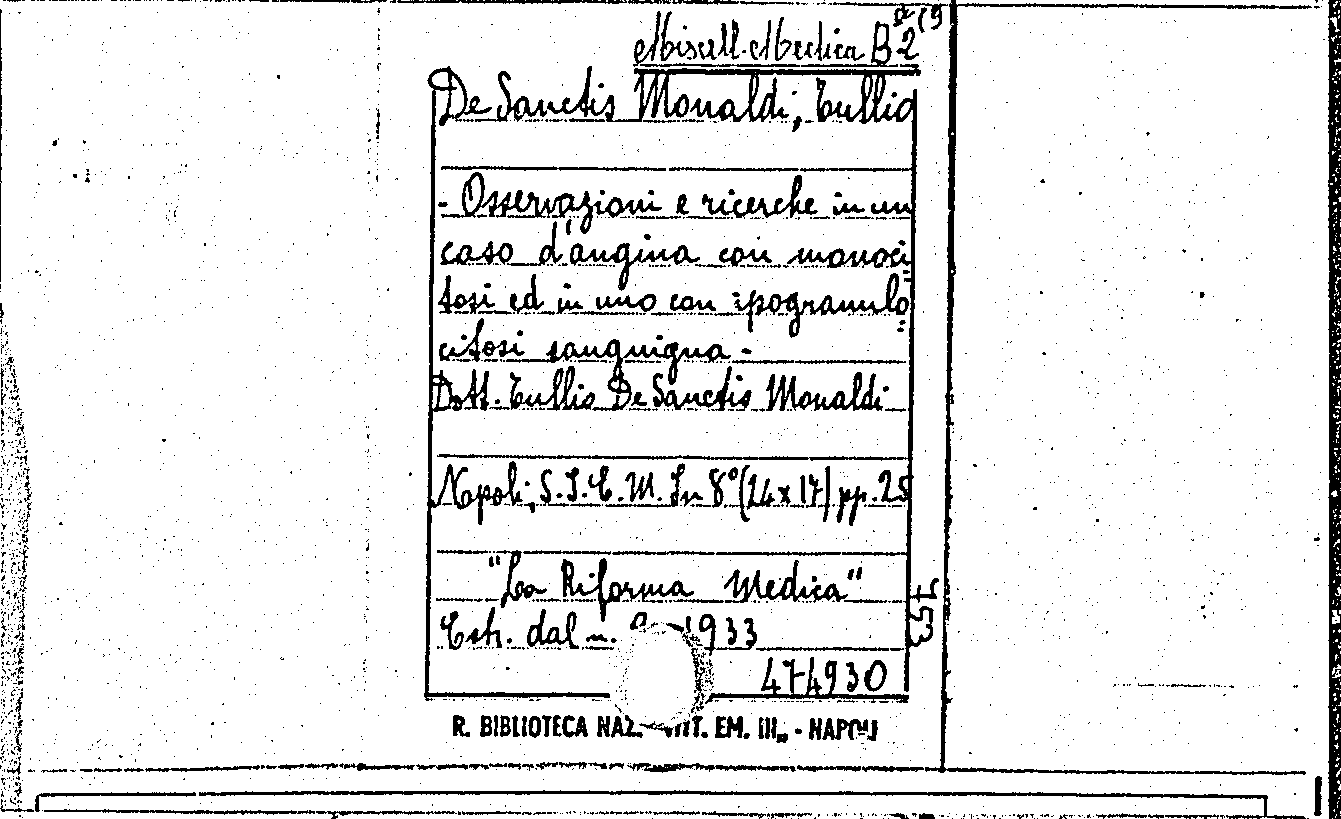 Miscell. Medica B 2 (9
De Sanctis Monaldi, Tullio
- Osservazioni e ricerche in un
caso d'angina con monoci=
tosi ed in uno con ipogranulo=
citosi sanguigna -
Dott. Tullio De Sanctis Monaldi
Napoli, S.I.E.M. In 8° (24x17) pp. 25
"La Riforma Medica"
Estr. dal n. 1933
474930
753
R. BIBLIOTECA NAZ. VITT. EM. III„ - NAPOLI